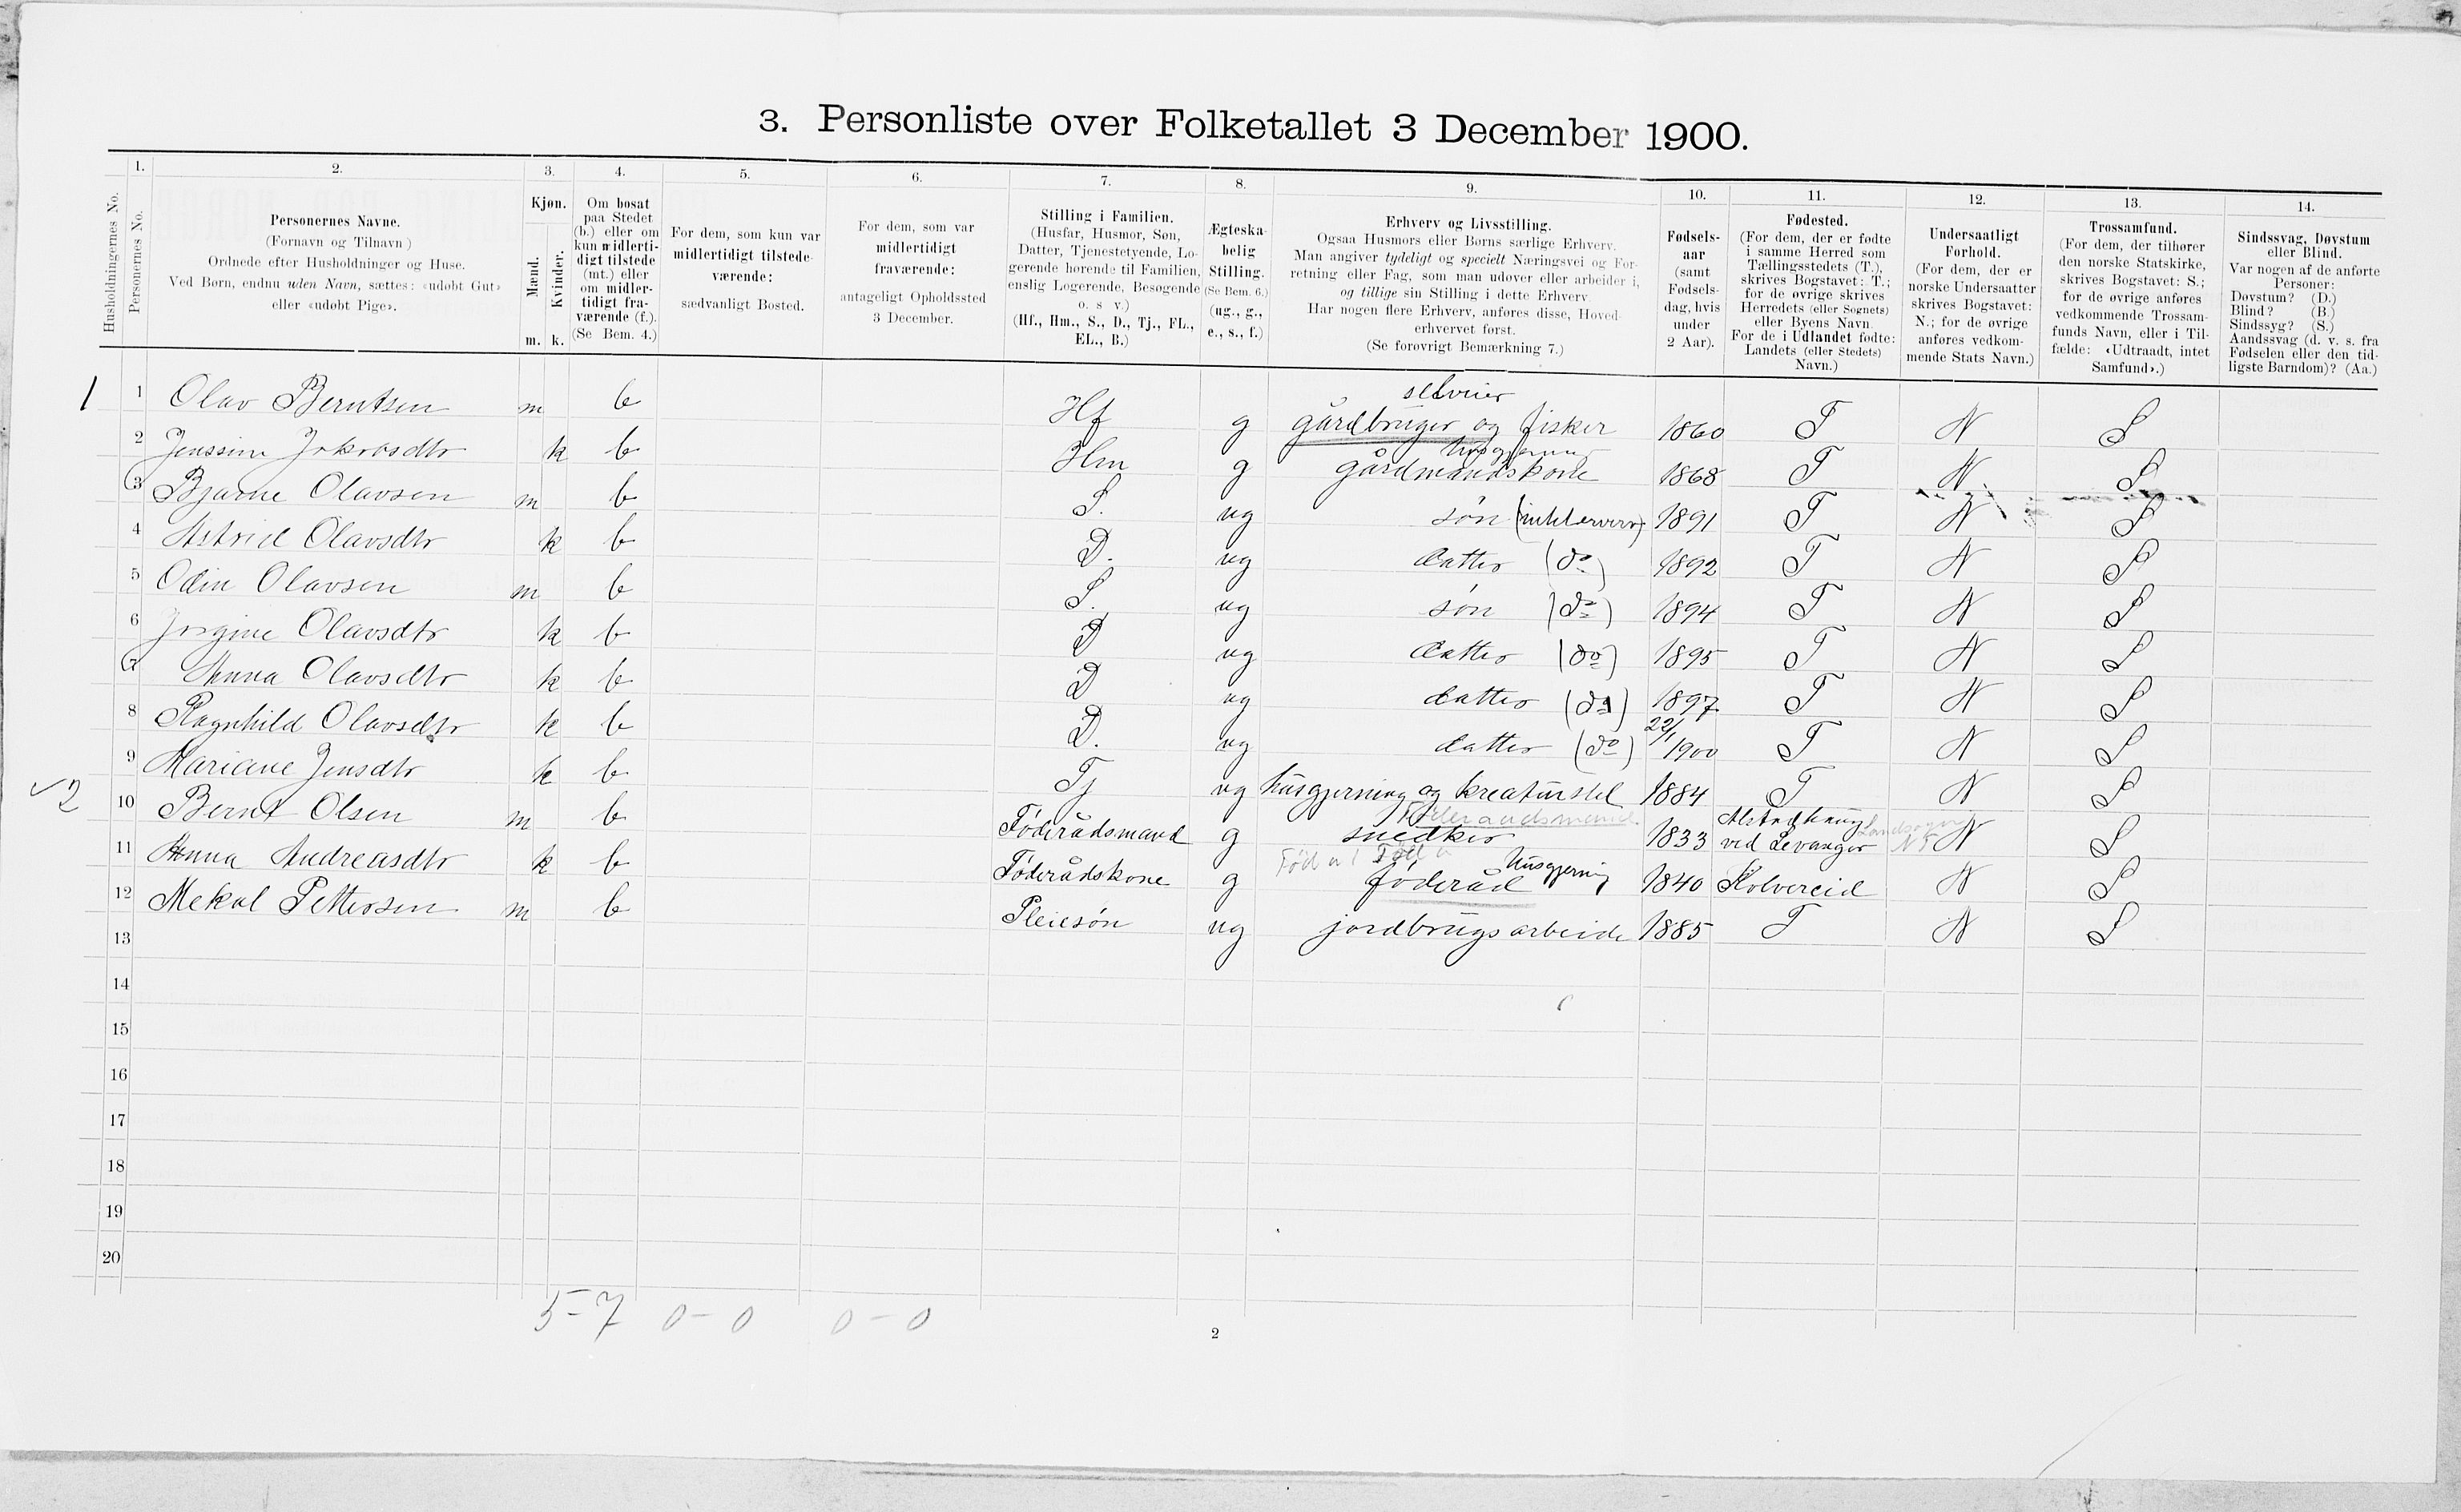 3. Personliste over Folketallet 3 December 1900.
1. 2. 3. 4. 5. 6. 7. 8. 9. 10. 11. 12. 13. 14.
Husholdningernes No.
Personernes No.
Personernes Navne.
(Fornavn og Tilnavn)
Ordnede efter Husholdninger og Huse.
Ved Børn, endnu uden Navn, sættes: «udøbt Gut»
eller «udøbt Pige».
Kjøn.
Mænd.
Kvinder.
m. k.
Om bosat
paa Stedet
(b.) eller om
kun midlerti-
digt tilstede
(mt.) eller
om midler-
tidigt fra-
værende (f.).
(Se Bem. 4.)
For dem, som kun var
midlertidigt tilstede-
værende:
sædvanligt Bosted.
For dem, som var
midlertidigt
fraværende:
antageligt Opholdssted
3 December.
Stilling i Familien.
(Husfar, Husmor, Søn,
Datter, Tjenestetyende, Lo-
gerende hørende til Familien,
enslig Logerende, Besøgende
o. s v.)
(Hf., Hm., S., D., Tj., FL.,
EL., B.)
Ægteska-
belig
Stilling.
(Se Bem. 6.)
(ug., g.,
e., s., f.)
Erhverv og Livsstilling.
Ogsaa Husmors eller Børns særlige Erhverv.
Man angiver tydeligt og specielt Næringsvei og For-
retning eller Fag, som man udøver eller arbeider i,
og tillige sin Stilling i dette Erhverv
Har nogen flere Erhverv, anføres disse, Hoved-
erhvervet først.
(Se forøvrigt Bemærkning 7.)
Fødsels-
aar
(samt
Fødsels-
dag, hvis
under
2 Aar).
Fødested.
(For dem, der er fødte
i samme Herred som
Tællingsstedets (T.),
skrives Bogstavet: T.;
for de øvrige skrives
Herredets (eller Sognets)
eller Byens Navn.
For de i Udlandet fødte:
Landets (eller Stedets)
Navn.)
Undersaatligt
Forhold.
(For dem, der er
norske Undersaatter
skrives Bogstavet:
N.; for de øvrige
anføres vedkom-
mende Stats Navn.)
Trossamfund.
(For dem, der tilhører
den norske Statskirke,
skrives Bogstavet: S.;
for de øvrige anføres
vedkommende Trossam-
funds Navn, eller i Til-
fælde: «Udtraadt, intet
Samfund».)
Sindssvag, Døvstum
eller Blind.
Var nogen af de anførte
Personer:
Døvstum? (D.)
Blind? (B.)
Sindssyg? (S.)
Aandssvag (d. v. s. fra
Fødselen eller den tid-
ligste Barndom)? (Aa.)
selveier
1 1 Olav Berntsen m b Hf g gårdbruger og fisker 1860 T N S
husgjerning
2 Jenssine Jakobsdtr k b Hm g gårdmandskone 1868 T N S
3 Bjarne Olavsen m b S. ug søn 1891 T N S
4 Astrid Olavsdtr k b D. ug datter (do) 1892 T N S
5 Odin Olavsen m b S. ug søn (do) 1894 T N S
6 Jørgine Olavsdtr k b D ug datter (do) 1895 T N S
7 Anna Olavsdtr k b D ug datter (do) 1897 T N S
8 Ragnhild Olavsdtr k b D. ug datter (do) 22/1 1900 T N S
9 Mariane Jensdtr k b Tj ug husgjerning og kreaturstel 1884 T N S
2 10 Bernt Olsen m b Föderådsmand g snedker 1833 Alstadhaug ved Levanger N S
11 Anna Andreasdtr k b Föderådskone g föderåd husgjerning 1840 Kolvereid N S
12 Mekal Pettersen m b Pleiesøn ug jordbrugsarbeide 1885 T N S
13
14
15
16
17
18
19
20
5 - 7 0 - 0 0 - 0
2